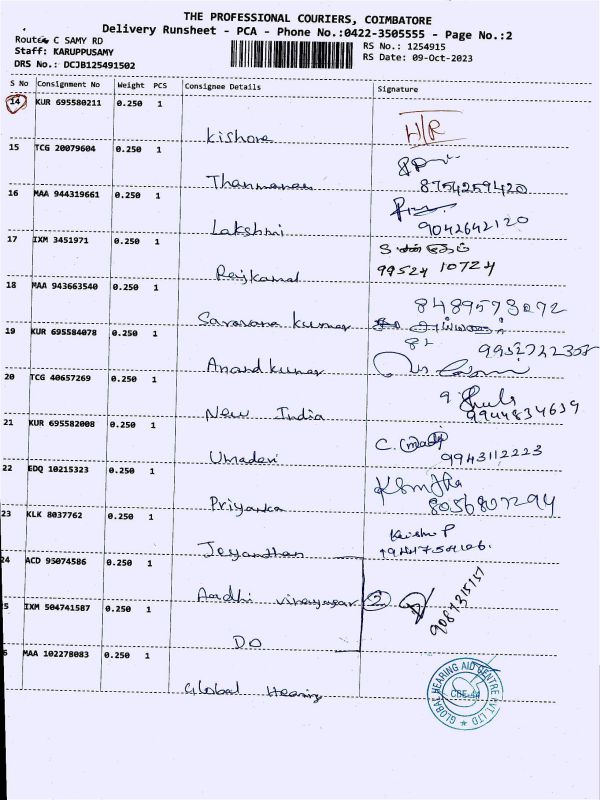 THE PROFESSIONAL COURIERS, COIMBATORE
Delivery Runsheet - PCA - Phone No.:0422-3505555 - Page No.:2
Route: C SAMY RD
RS No.: 1254915
Staff: KARUPPUSAMY
RS Date: 09-Oct-2023
DRS No.: DCJB125491502
S No Consignment No Weight PCS Consignee Details Signature
14 KUR 695580211 0.250 1
Kishore H/R
15 TCG 20079604 0.250 1
8754259420
16 MAA 944319661 0.250 1
Lakshmi 9042642120
17 IXM 3451971 0.250 1
Rajkamal 99524 10724
18 MAA 943663540 0.250 1
8489573072
Saravana kumar
19 KUR 695584078 0.250 1
82 9952722358
Anandkumar
20 TCG 40657269 0.250 1
New India 9944834639
21 KUR 695582008 0.250 1
C.
Umadevi 9943112223
22 EDQ 10215323 0.250 1
Priyanka 8056807294
23 KLK 8037762 0.250 1
Jeyandhan
24 ACD 95074586 0.250 1
Aadhi vinayagar 2 9087215157
5 IXM 504741587 0.250 1
DO
6 MAA 102278083 0.250 1
Global Hearing
GLOBAL HEARING AID CENTRE PVT LTD
CBE-44